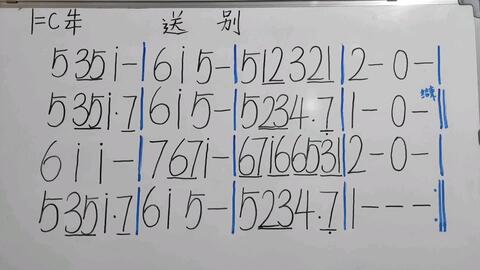 1=C 4/4 送别
5 3 5 i - | 6 i 5 - | 5 1 2 3 2 1 | 2 - 0 - |
5 3 5 i · 7 | 6 i 5 - | 5 2 3 4 · 7 | 1 - 0 - ‖
6 i i - | 7 6 7 i - | 6 7 i 6 6 5 3 1 | 2 - 0 - |
5 3 5 i · 7 | 6 i 5 - | 5 2 3 4 · 7 | 1 - - - :‖